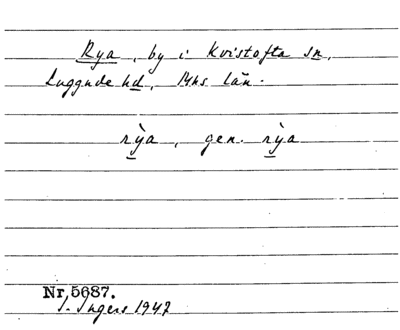 Rya, by i Kvistofta sn,
Luggude hd, Mhs län.
rỳa, gen. rỳa
Nr 5687.
I. Ingers 1942